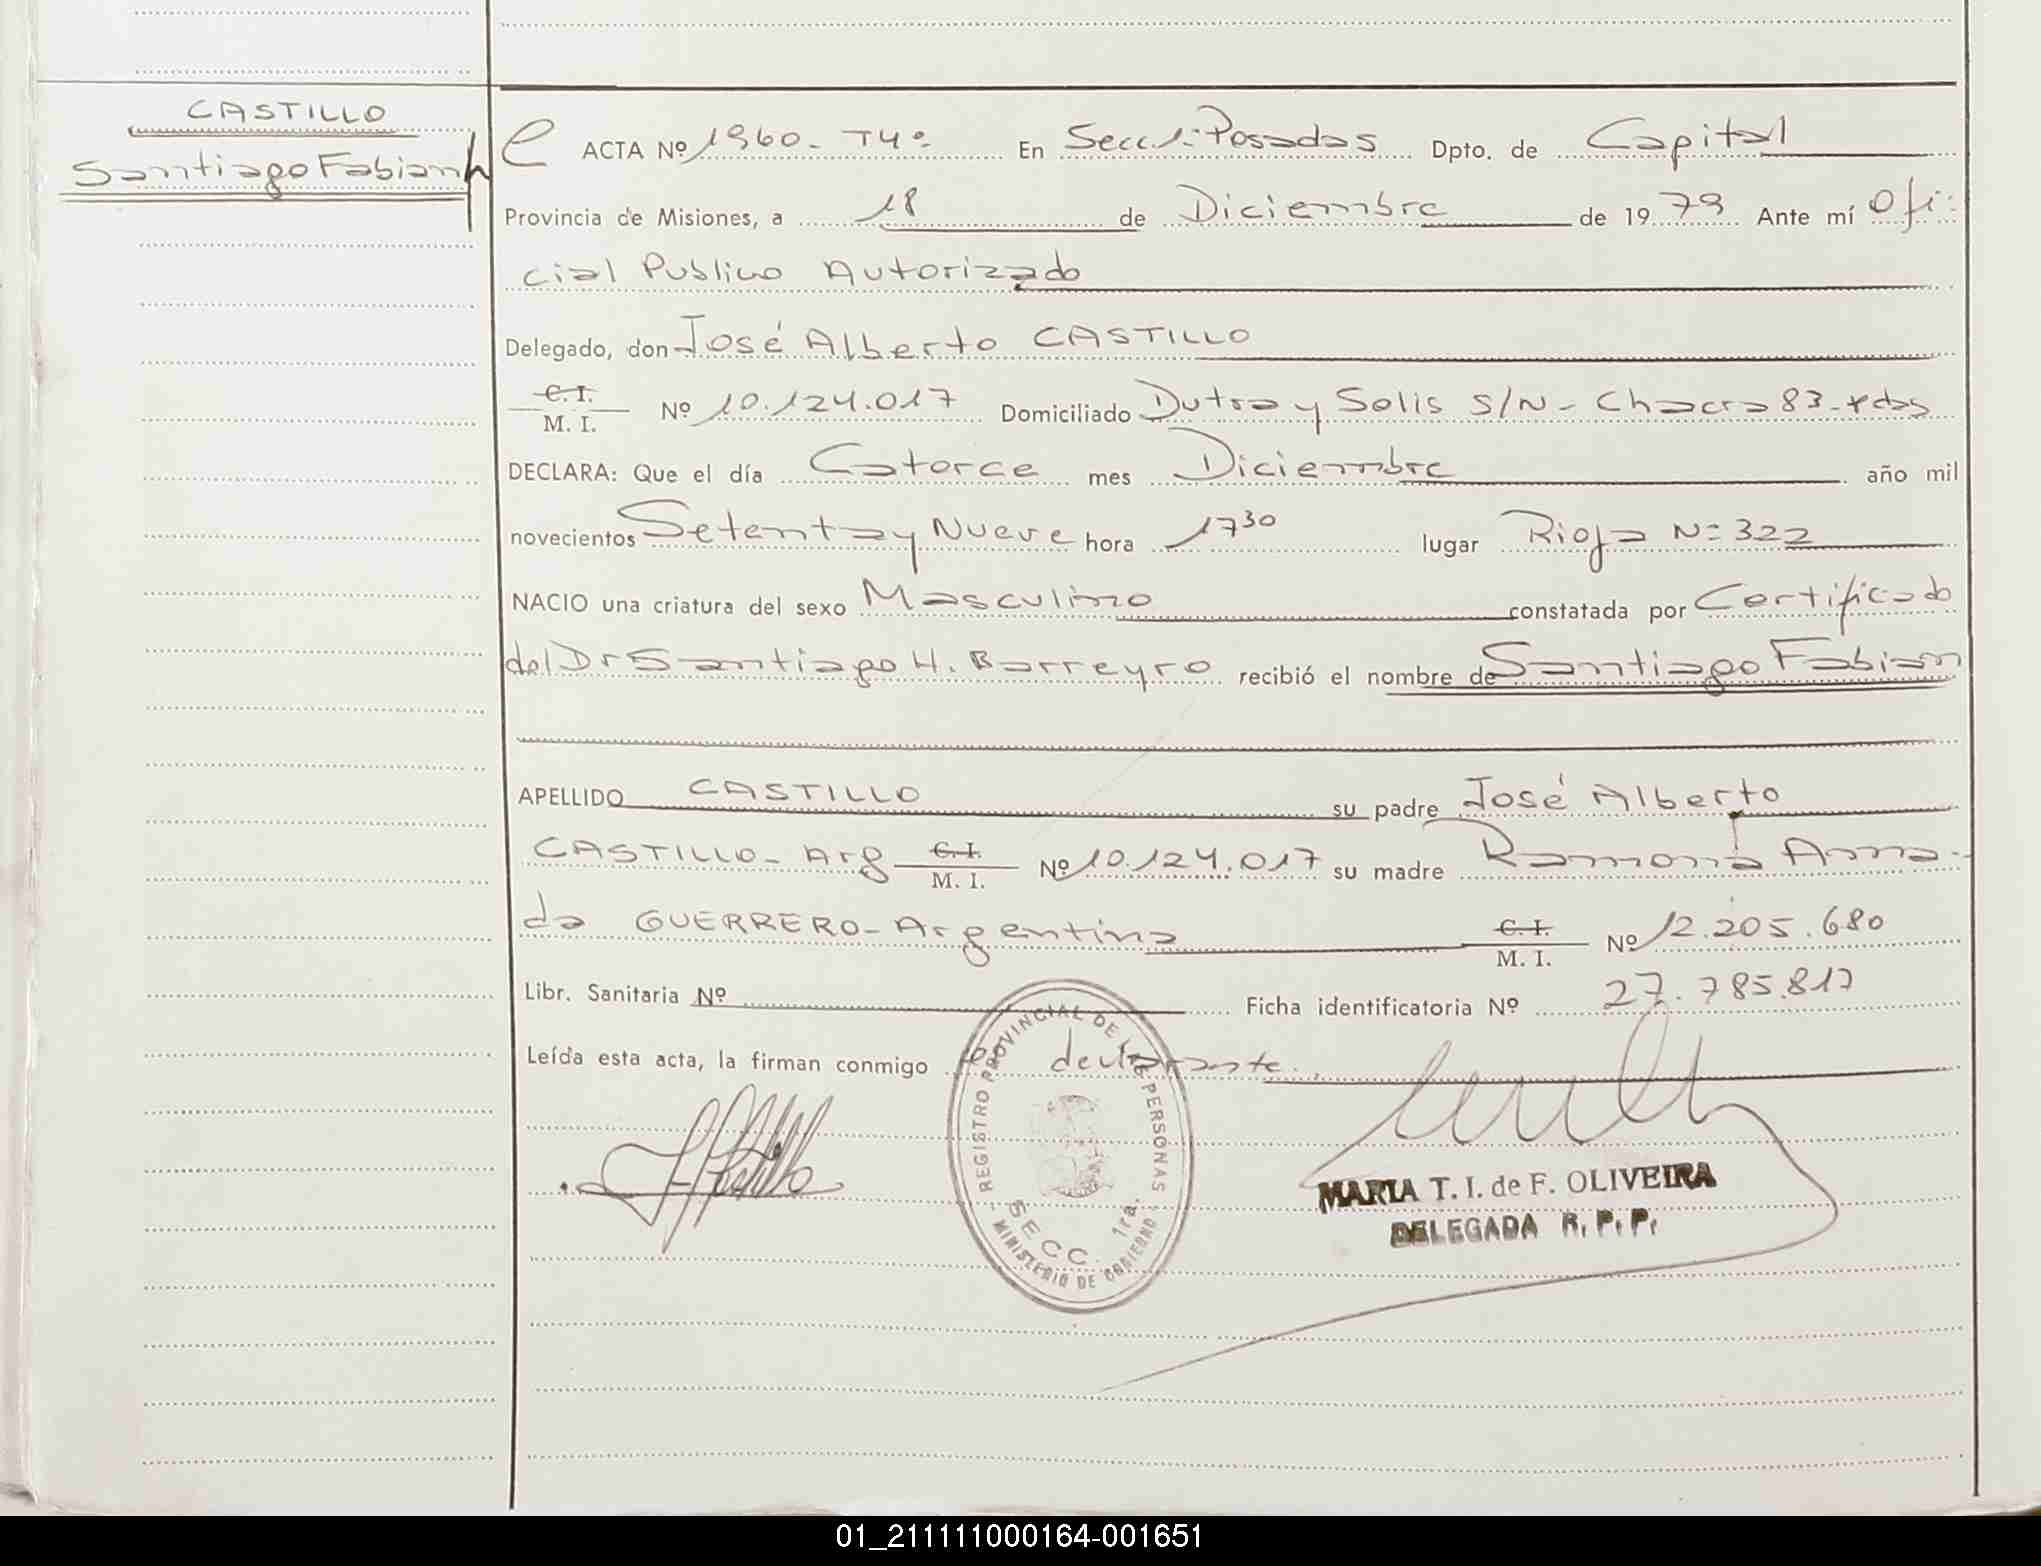 CASTILLO
Santiago Fabian
ACTA Nº 1960 - T4º En Secc 1: Posadas Dpto. de Capital
Provincia de Misiones, a 18 de Diciembre de 1979 Ante mí Ofi-
cial Publico Autorizado
Delegado, don José Alberto CASTILLO
C. I.
M. I. Nº 10.124.017 Domiciliado Dutra y Solis S/N - Chacra 83 - Pdas
DECLARA: Que el día Catorce mes Diciembre año mil
novecientos Setenta y Nueve hora 17 30 lugar Rioja Nº 322
NACIO una criatura del sexo Masculino constatada por Certificado
del Dr Santiago H. Barreyro recibió el nombre de Santiago Fabian
APELLIDO CASTILLO su padre José Alberto
CASTILLO - Arg C. I. M. I. Nº 10.124.017 su madre Ramona Arma-
da GUERRERO - Argentina C. I. M. I. Nº 12.205.680
Libr. Sanitaria Nº Ficha identificatoria Nº 27.785.817
Leída esta acta, la firman conmigo declarante.
REGISTRO PROVINCIAL DE LAS PERSONAS
SECC. 1ra.
MINISTERIO DE GOBIERNO
MARIA T. I. de F. OLIVEIRA
DELEGADA R. P. P.
01_211111000164-001651